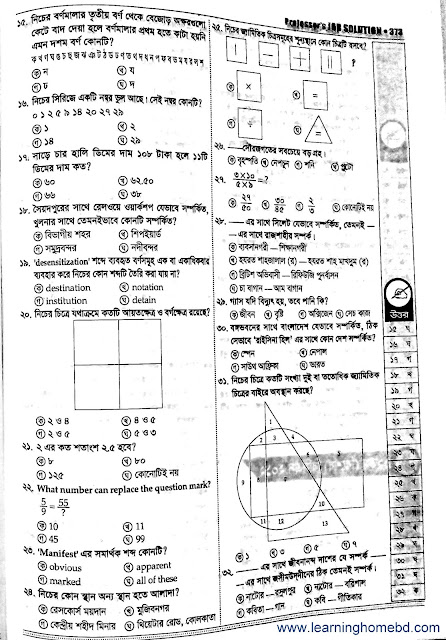 Professor's JOB SOLUTION • 373
১৫. নিচের বর্ণমালার তৃতীয় বর্ণ থেকে বেজোড় অক্ষরগুলো
কেটে বাদ দেয়া হলে বর্ণমালার প্রথম হতে কাটা হয়নি
এমন দশম বর্ণ কোনটি?
ক খ গ ঘ ঙ চ ছ জ ঝ ঞ ট ঠ ড ঢ ণ ত থ দ ধ ন প ফ ব ভ ম য র ল শ
ক ন খ য
গ ঢ ঘ দ
১৬. নিচের সিরিজে একটি নম্বর ভুল আছে। সেই নম্বর কোনটি?
০ ১ ২ ৫ ৯ ১৪ ২০ ২৭ ২৯
ক ১ খ ২
গ ১৪ ঘ ২৯
১৭. সাড়ে চার হালি ডিমের দাম ১০৮ টাকা হলে ১১টি
ডিমের দাম কত?
ক ৬০ খ ৬২.৫০
গ ৬৬ ঘ ৩৮
১৮. সৈয়দপুরের সাথে রেলওয়ে ওয়ার্কশপ যেভাবে সম্পর্কিত,
খুলনার সাথে তেমনইভাবে কোনটি সম্পর্কিত?
ক বিভাগীয় শহর খ শিপইয়ার্ড
গ সমুদ্রবন্দর ঘ নদীবন্দর
১৯. 'desensitization' শব্দে ব্যবহৃত বর্ণসমূহ এক বা একাধিকবার
ব্যবহার করে নিচের কোন শব্দটি তৈরি করা যায় না?
ক destination খ notation
গ institution ঘ detain
২০. নিচের চিত্রে যথাক্রমে কতটি আয়তক্ষেত্র ও বর্গক্ষেত্র রয়েছে?
ক ২ ও ৪ খ ৪ ও ৫
গ ২ ও ৫ ঘ ৫ ও ৩
২১. ২ এর কত শতাংশ ২.৫ হবে?
ক ৮ খ ৮০
গ ১২৫ ঘ কোনোটিই নয়
২২. What number can replace the question mark?
5/9 = 55/?
ক 10 খ 11
গ 45 ঘ 99
২৩. 'Manifest' এর সমার্থক শব্দ কোনটি?
ক obvious খ apparent
গ marked ঘ all of these
২৪. নিচের কোন স্থান অন্য স্থান হতে আলাদা?
ক রেসকোর্স ময়দান খ মুজিবনগর
গ কেন্দ্রীয় শহীদ মিনার ঘ থিয়েটার রোড, কোলকাতা
২৫. নিচের জ্যামিতিক চিত্রসমূহের শূন্যস্থানে কোন চিত্রটি বসবে?
?
ক × খ ÷
গ ঘ
২৬. —সৌরজগতের সবচেয়ে বড় গ্রহ।
ক বৃহস্পতি খ নেপচুন গ শনি ঘ প্লুটো
২৭. ৩×১০/৫×৯ = ?
ক ২৭/৫০ খ ৩০/৪৫ গ ২/৩ ঘ কোনোটিই নয়
২৮. — এর সাথে সিলেট যেভাবে সম্পর্কিত, তেমনই —
— এর সাথে রাজশাহীর সম্পর্ক।
ক ব্যবসানগরী — শিক্ষানগরী
খ হযরত শাহজালাল (র) — হযরত শাহ মাখদুম (র)
গ ব্রিটিশ অভিবাসী — রিফিউজি পুনর্বাসন
ঘ চা বাগান — আম বাগান
২৯. গ্যাস যদি বিদ্যুৎ হয়, তবে পানি কি?
ক জীবন খ বৃষ্টি গ অক্সিজেন ঘ সেচ কাজ
৩০. বঙ্গভবনের সাথে বাংলাদেশ যেভাবে সম্পর্কিত, ঠিক
সেভাবে 'রাইসিনা হিল' এর সাথে কোন দেশ সম্পর্কিত?
ক স্পেন খ নেপাল
গ সাউথ আফ্রিকা ঘ ভারত
৩১. নিচের চিত্রে কতটি সংখ্যা দুই বা ততোধিক জ্যামিতিক
চিত্রের বাইরে অবস্থান করছে?
1
2 3 4
9
11 12 13
ক ১ খ ৩ গ ৫ ঘ ৭
৩২. — এর সাথে জীবনানন্দ দাশের যে সম্পর্ক —
— এর সাথে জসীমউদ্‌দীনের ঠিক তেমনই সম্পর্ক।
ক নাটোর — রসুলপুর খ নাটোর — বরিশাল
গ কবিতা — গান ঘ কবি — গীতিকার
উত্তর
১৫ ঘ
১৬ ঘ
১৭ গ
১৮ খ
১৯ গ
২০ খ
২১ গ
২২ ঘ
www.learninghomebd.com